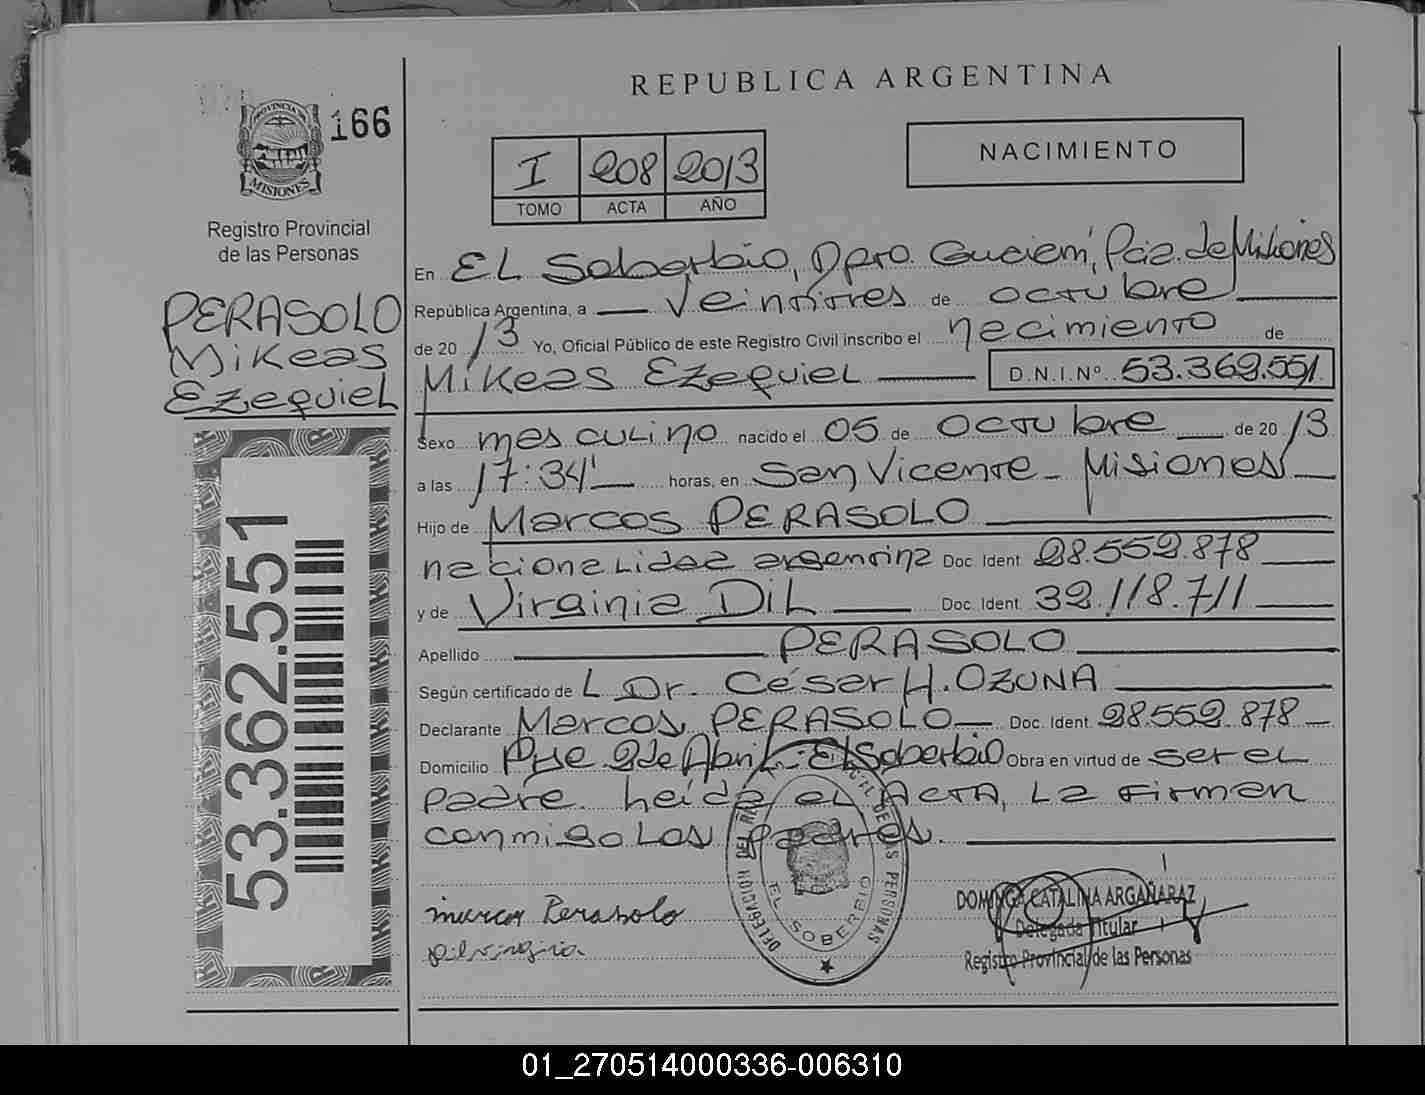 REPUBLICA ARGENTINA
PROVINCIA DE
MISIONES
166
Registro Provincial
de las Personas
PERASOLO
Mikeas
Ezequiel
53.362.551
I 208 2013
TOMO ACTA AÑO
NACIMIENTO
En EL Soberbio, Dpto. Guaraní, Pcia. de Misiones
República Argentina, a veintitres de octubre
de 20 13 Yo, Oficial Público de este Registro Civil inscribo el nacimiento de
Mikeas Ezequiel D.N.I.Nº 53.362.551
Sexo masculino nacido el 05 de octubre de 20 13
a las 17:34' horas, en San Vicente - Misiones
Hijo de Marcos PERASOLO
nacionalidad argentina Doc. Ident. 28.552.878
y de Virginia DIL Doc. Ident. 32.118.711
Apellido PERASOLO
Según certificado de L Dr. César H. OZUNA
Declarante Marcos PERASOLO Doc. Ident. 28.552.878
Domicilio 2 de Abril - El Soberbio Obra en virtud de ser el
padre. Leída el ACTA, La firman
conmigo Los padres.
marcos Perasolo
dil virginia
DELEGACION DEL REG. C. DE LAS PERSONAS
EL SOBERBIO
DOMINGA CATALINA ARGAÑARAZ
Delegada Titular
Registro Provincial de las Personas
01_270514000336-006310